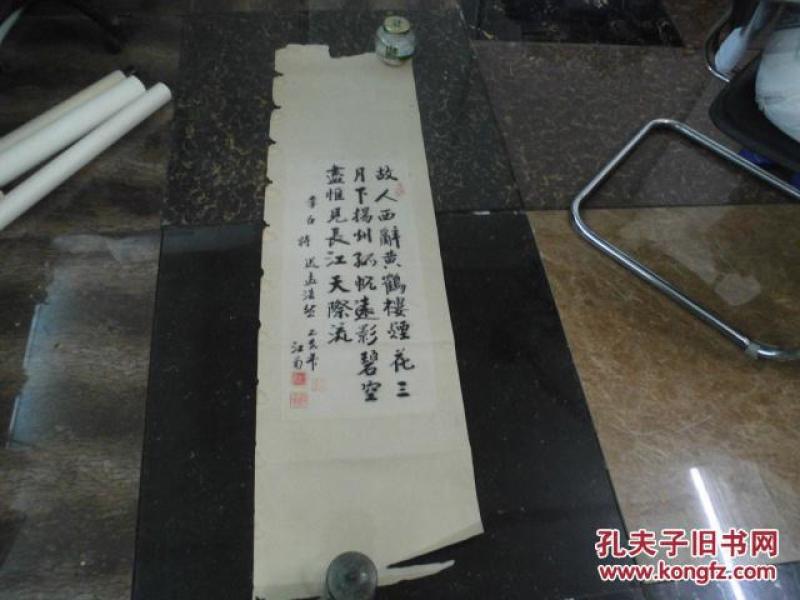 故人西辭黄鶴樓煙花三
月下揚州孤帆遠影碧空
盡惟見長江天際流
李白詩 送孟浩然 乙亥年
江南
孔夫子旧书网
www.kongfz.com